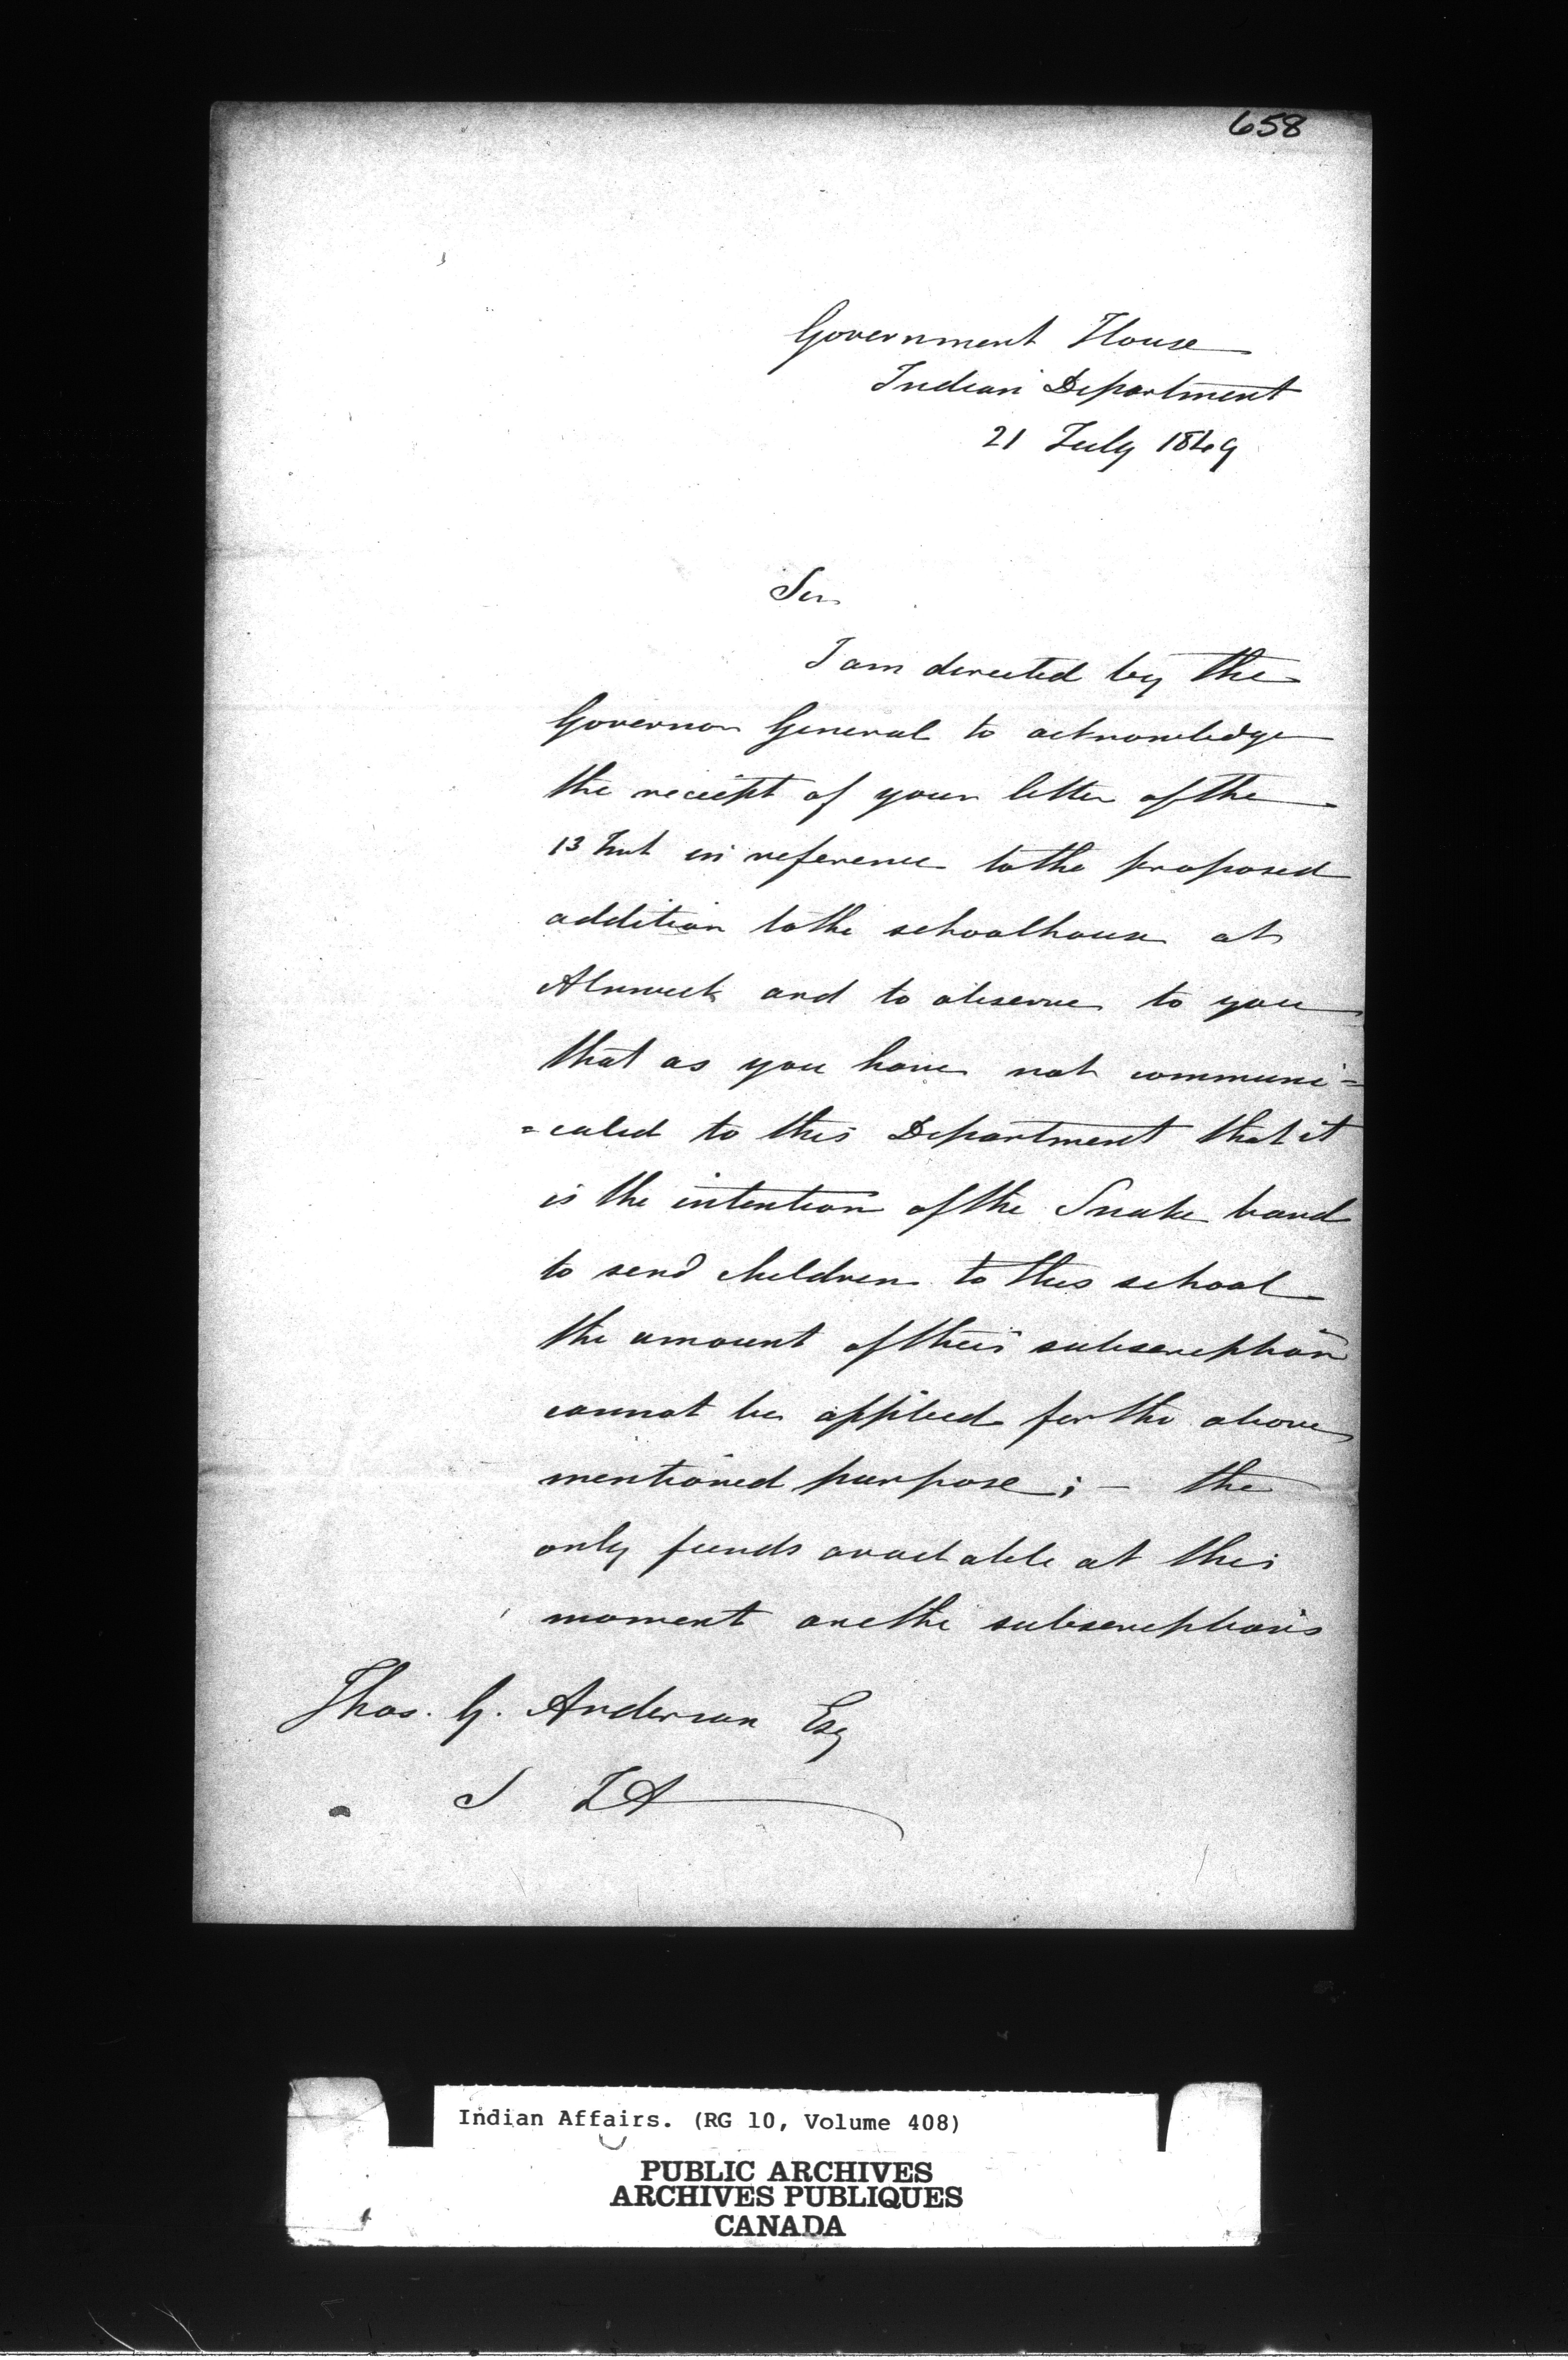 658
Government House
Indian Department
21 July 1849
Sir
I am directed by the
Governor General to acknowledge
the receipt of your letter of the
13 Inst in reference to the proposed
addition to the schoolhouse at
Alnwick and to observe to you
that as you have not communi=
=cated to this Department that it
is the intention of the Snake band
to send children to this school
the amount of their subscription
cannot be applied for the above
mentioned purpose; - the
only funds available at this
moment are the subscriptions
Thos. G. Anderson Esq
S I A
Indian Affairs. (RG 10, Volume 408)
PUBLIC ARCHIVES
ARCHIVES PUBLIQUES
CANADA